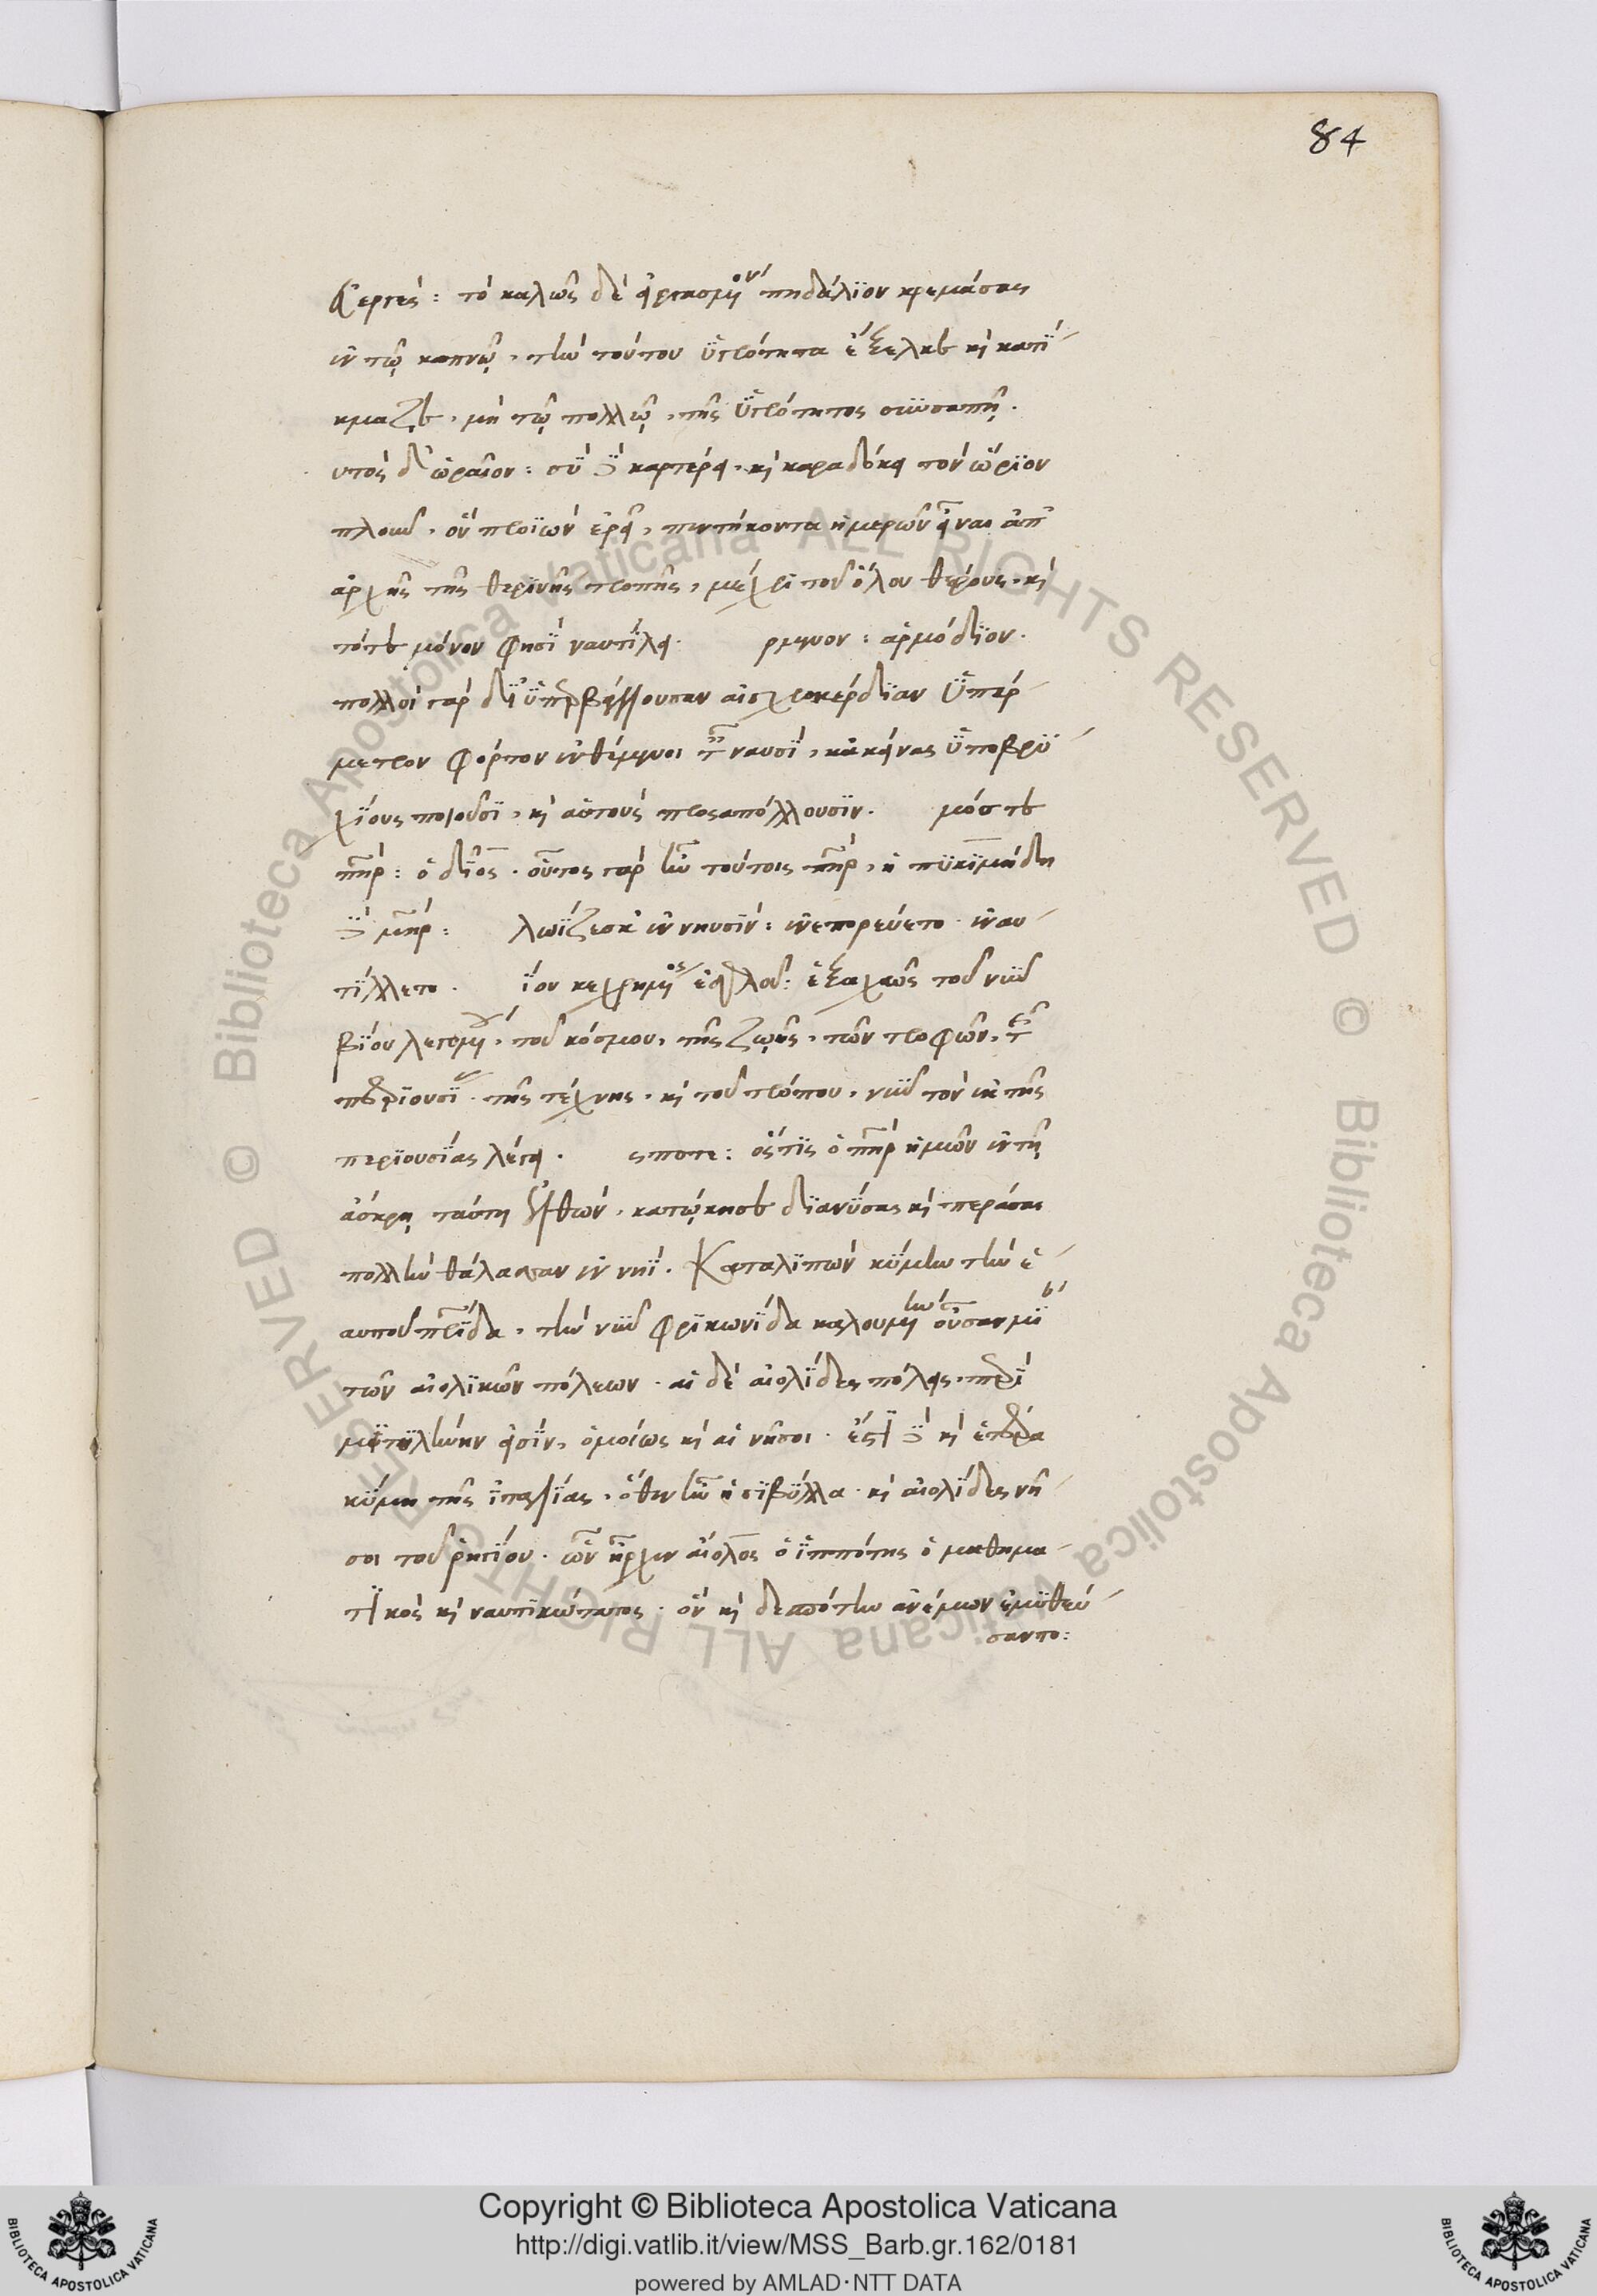 84
εργές: τὸ καλῶς δὲ εἰργασμένον πηδάλιον κρεμάσας
ἐν τῷ καπνῷ, τὴν τούτου ὑγρότητα ἐξελκε καὶ κατί-
κμαζε, μὴ τῷ πολλῷ, τῆς ὑγρότητος συσαπῇ.
υτὸς δ' ὡραῖον: σὺ δὲ καρτέρει καὶ καραδόκει τὸν ὥριον
πλοῦν, ὃν προϊὼν ἐρεῖ, πεντήκοντα ἡμερῶν εἶναι ἀπ'
ἀρχῆς τῆς θερινῆς τροπῆς, μέχρι τοῦ ὅλου θέρους. καὶ
τότε μόνον φησὶ ναυτίλει. ρμενον: ἁρμόδιον.
πολλοὶ γὰρ δι' ὑπερβάλλουσαν αἰσχροκέρδιαν ὑπέρ-
μετρον φόρτον ἐνθέμενοι ταῖς ναυσὶ, κἀκείνας ὑποβρυ-
χίους ποιοῦσι, καὶ αὑτοὺς προσαπόλλουσιν. μόστε
πὴρ: ὁ δῖος. οὗτος γὰρ ἦν τούτοις πὴρ, ἡ πυκιμήδη
δὲ μὴρ: λωΐζεσκ' ἐν νηυσίν: ἐνεπορεύετο ἐναυ-
τίλλετο. ίου κεχρημένος ἐσθλοῦ: ἑξαχῶς τοῦ νῦν
βίου λεγομένου, τοῦ κόσμου, τῆς ζωῆς, τῶν τροφῶν, τῆς
περιουσίας τῆς τέχνης, καὶ τοῦ τρόπου, νῦν τὸν ἐκ τῆς
περιουσίας λέγει. ςποτε: ὅστις ὁ πὴρ ἡμῶν ἐν τῇ
ἄσκρῃ ταύτῃ ἐλθὼν, κατῴκησε διανύσας καὶ περάσας
πολλὴν θάλασσαν ἐν νηΐ. Καταλιπὼν κύμην τὴν ἑ-
αυτοῦ πρίδα, τὴν νῦν φρικωνίδα καλουμένην οὖσαν μίαν
τῶν αἰολικῶν πόλεων. αἱ δὲ αἰολίδες πόλεις, περὶ
μιτυλήνην εἰσὶν, ὁμοίως καὶ αἱ νῆσοι. ἔστι δὲ καὶ ἑτέρα
κύμη τῆς ἰταλίας, ὅθεν ἦν ἡ σιβύλλα. καὶ αἰολίδες νῆ-
σοι τοῦ ῥηγίου. ὧν ἦρχεν αἴολος ὁ ἱππότης ὁ μαθημα-
τικὸς καὶ ναυτικώτατος. ὃν καὶ δεσπότην ἀνέμων ἐμυθεύ-
σαντο:
Copyright © Biblioteca Apostolica Vaticana
http://digi.vatlib.it/view/MSS_Barb.gr.162/0181
powered by AMLAD·NTT DATA